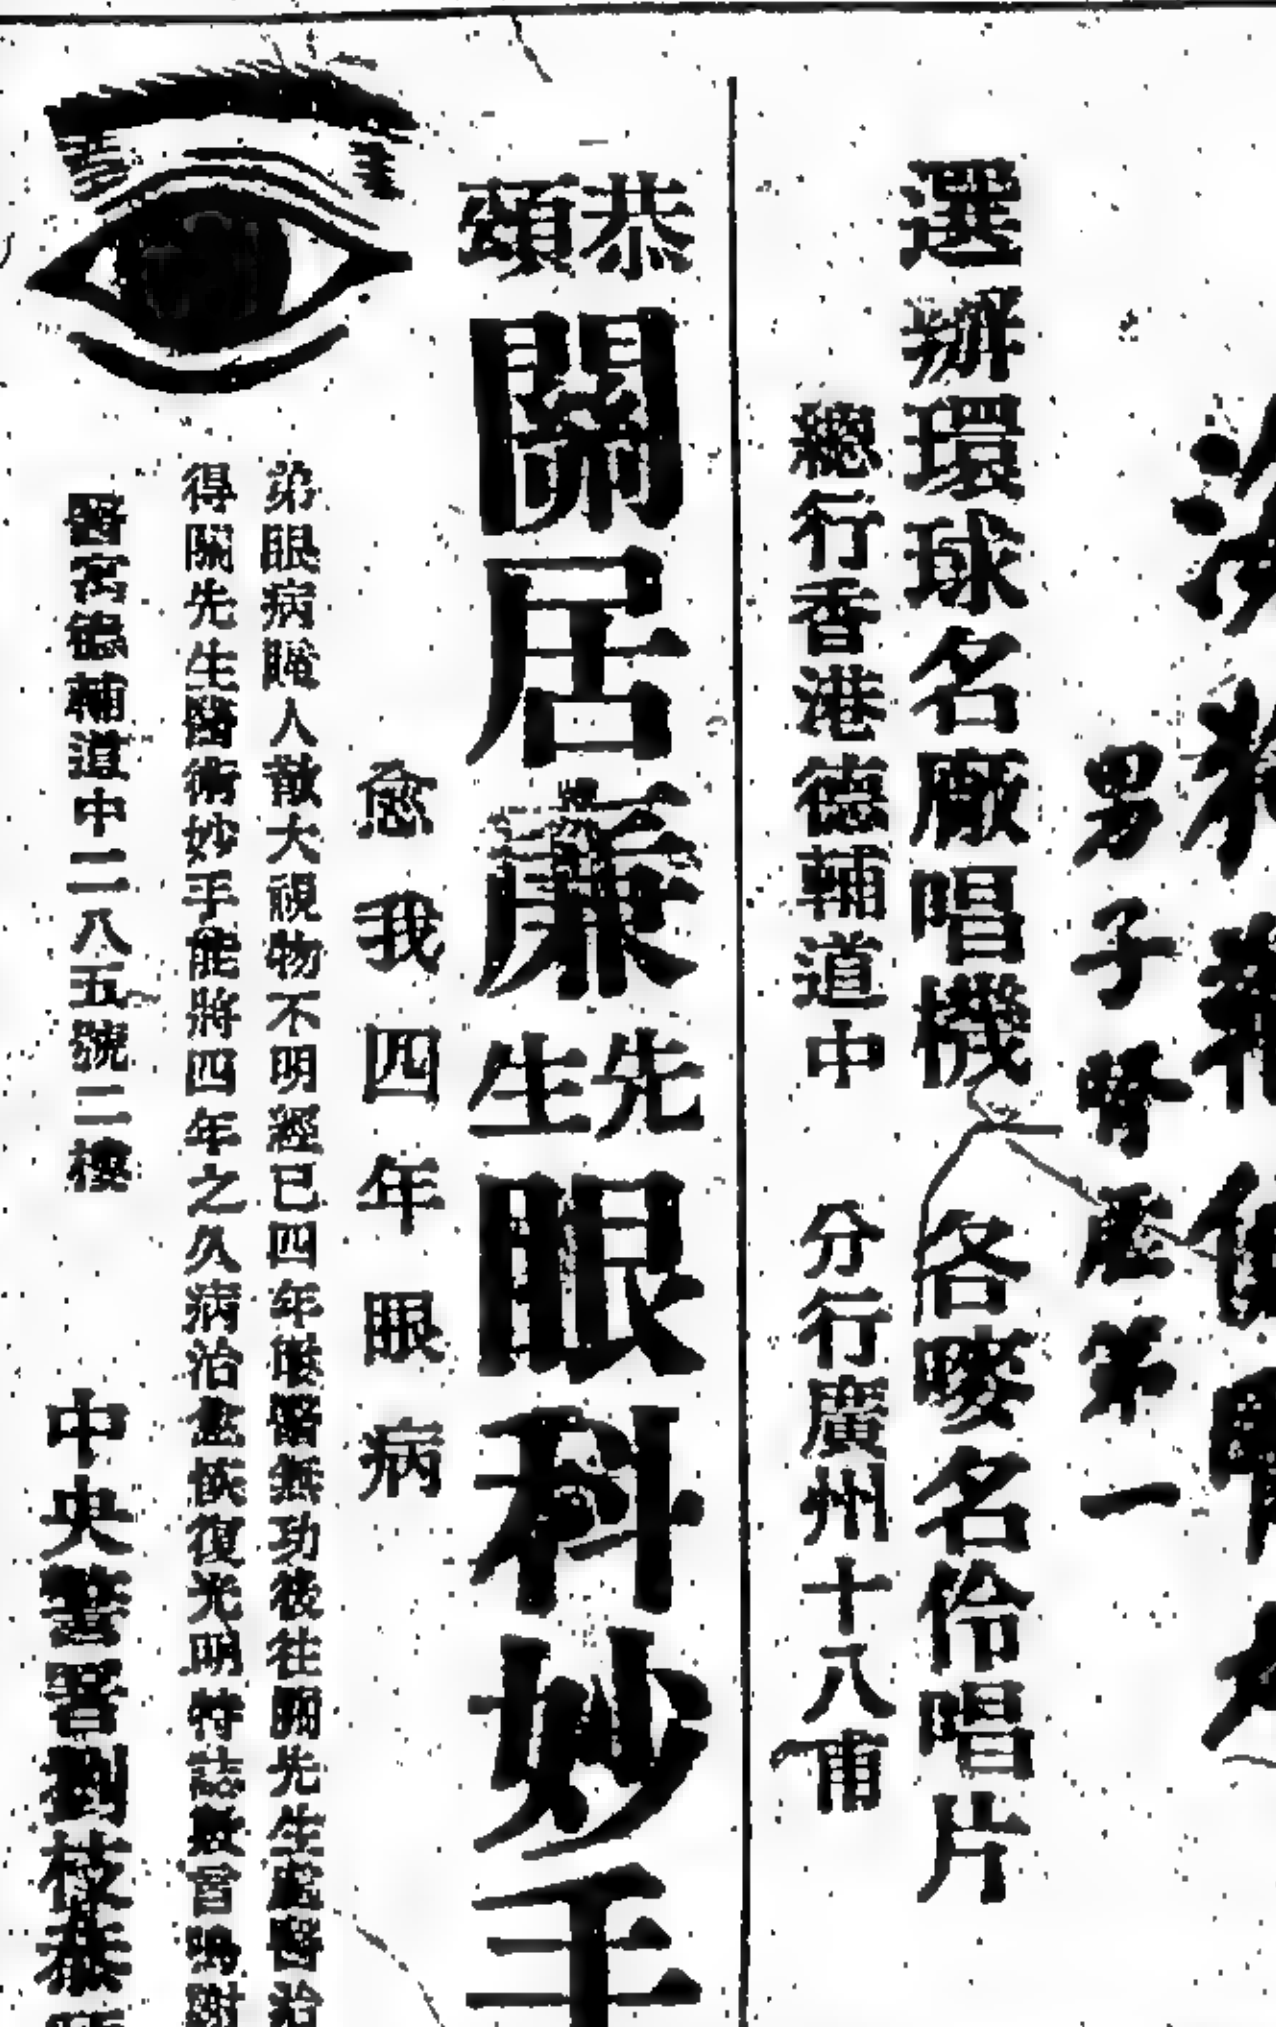 男子腎虧第一
選辦環球名廠唱機 各嘜名伶唱片
總行香港德輔道中 分行廣州十八甫
恭頌
關居廉先生眼科妙手
愈我四年眼病
弟眼病瞳人散大視物不明經已四年延醫無功後往關先生處醫治
得關先生醫術妙手能將四年之久病治愈恢復光明特誌數言鳴謝
醫寓德輔道中二八五號二樓
中央警署劉枝恭頌